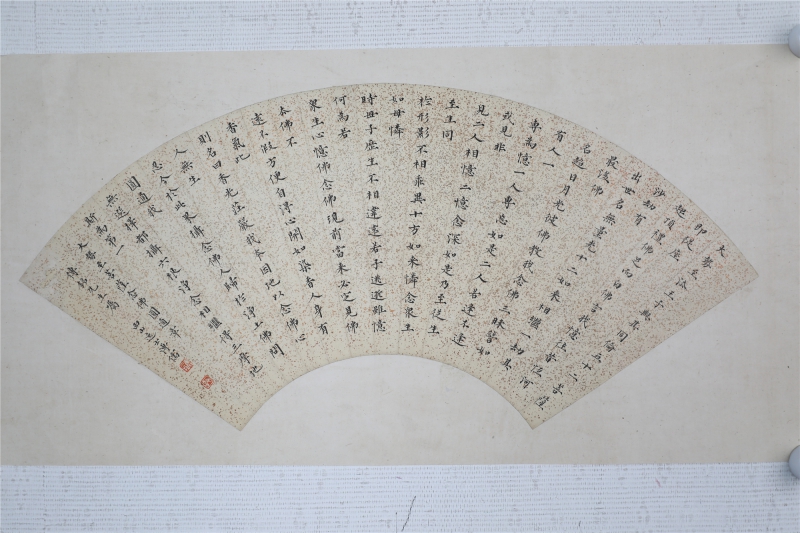 大勢至法王子與其同倫五十二菩薩
即從座
起頂禮佛足而白佛言我憶往昔恆河
沙劫有佛
出世名無量光十二如來相繼一劫其
最後佛
名超日月光彼佛教我念佛三昧譬如
有人一
專為憶一人專忘如是二人若逢不逢
或見非
見二人相憶二憶念深如是乃至從生
至生同
於形影不相乖異十方如來憐念眾生
如母憐
時母子歷生不相違遠若子逃逝雖憶
何為若
眾生心憶佛念佛現前當來必定見佛
去佛不
遠不假方便自得心開如染香人身有
香氣此
則名曰香光莊嚴我本因地以念佛心
入無生
忍今於此界攝念佛人歸於淨土佛問
圓通我
無選擇都攝六根淨念相繼得三摩地
斯為第一
大勢至菩薩念佛圓通章
西山逸士溥儒